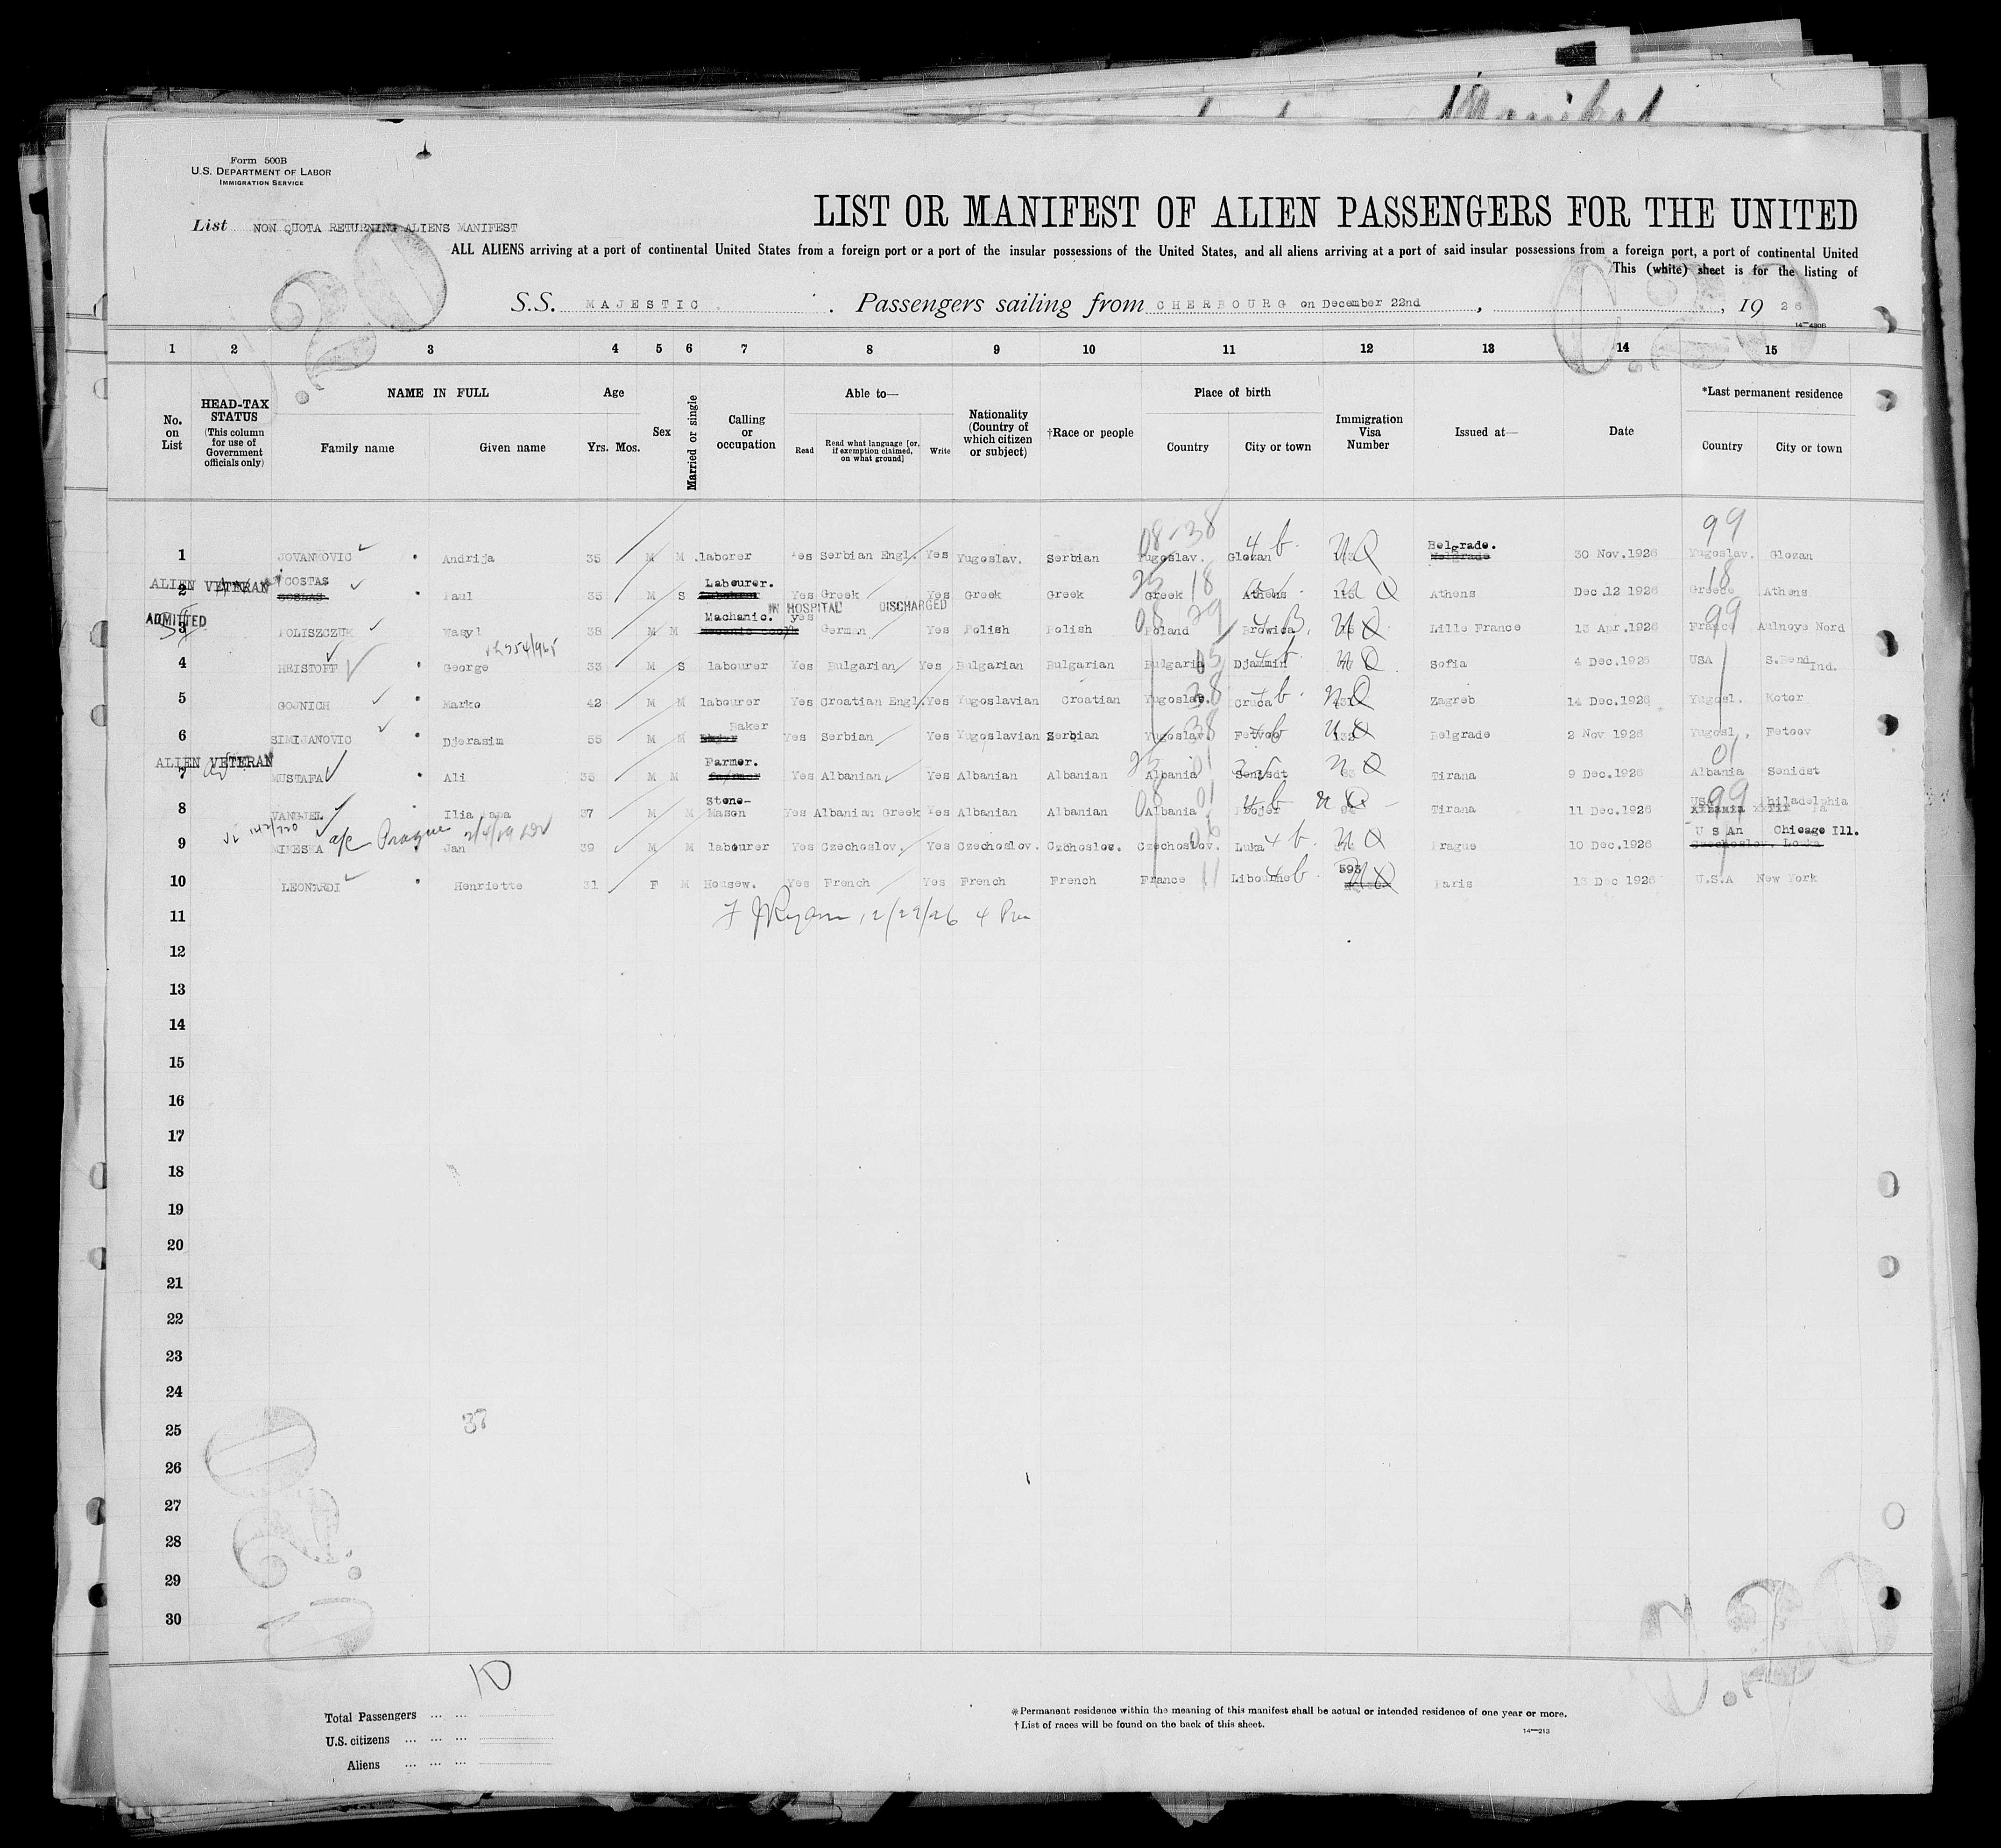 Manifest
Form 500B
U.S. DEPARTMENT OF LABOR
IMMIGRATION SERVICE
LIST OR MANIFEST OF ALIEN PASSENGERS FOR THE UNITED
List NON QUOTA RETURNING ALIENS MANIFEST
ALL ALIENS arriving at a port of continental United States from a foreign port or a port of the insular possessions of the United States, and all aliens arriving at a port of said insular possessions from a foreign port, a port of continental United
This (white) sheet is for the listing of
S.S. MAJESTIC. Passengers sailing from CHERBOURG on December 22nd, 1926
14—4306
1 2 3 4 5 6 7 8 9 10 11 12 13 14 15
No. on List
HEAD-TAX STATUS (This column for use of Government officials only)
NAME IN FULL
Family name Given name
Age
Yrs. Mos.
Sex
Married or single
Calling or occupation
Able to—
Read Read what language [or, if exemption claimed, on what ground] Write
Nationality (Country of which citizen or subject)
†Race or people
Place of birth
Country City or town
Immigration Visa Number
Issued at—
Date
*Last permanent residence
Country City or town
08-38 4 b. 99
1 JOVANKOVIC Andrija 35 M M laborer Yes Serbian Engl. Yes Yugoslav. Serbian Yugoslav. Glozan NQ Belgrade. Belgrade 30 Nov.1926 Yugoslav. Glozan
ALIEN VETERAN
2 COSTAS Paul 35 M S Labourer. Yes Greek Yes Greek Greek 18 Greek Athens NQ Athens Dec.12 1926 18 Greece Athens
IN HOSPITAL DISCHARGED
ADMITTED
3 POLISZCZUK Wasyl 38 M M Machanic. yes German Yes Polish Polish 08 29 Poland Browica NQ Lille France 13 Apr.1926 99 France Aulnoye Nord
4 HRISTOFF George 33 M S labourer Yes Bulgarian Yes Bulgarian Bulgarian Bulgaria 05 NQ Sofia 4 Dec.1926 USA S.Bend Ind.
5 GOJNICH Marko 42 M M labourer Yes Croatian Engl. Yes Yugoslavian Croatian Yugoslav. 38 NQ Zagreb 14 Dec.1926 Yugosl. Kotor
6 SIMIJANOVIC Djerasim 55 M M Baker Yes Serbian Yes Yugoslavian Serbian Yugoslav. 38 NQ Belgrade 2 Nov 1926 Yugosl. Fetoov
ALIEN VETERAN
7 MUSTAFA Ali 35 M M Farmer. Yes Albanian Yes Albanian Albanian Albania 01 NQ Tirana 9 Dec.1926 01 Albania Senidst
8 VANGJEL Ilia 37 M M Stone-Mason Yes Albanian Greek Yes Albanian Albanian 08 Albania 01 4 b NQ Tirana 11 Dec.1926 USA 99 Philadelphia
a/c Prague
9 Jan 39 M M labourer Yes Czechoslov. Yes Czechoslov. Czechoslov. Czechoslov. 06 Luka 4 b. NQ Prague 10 Dec.1926 U S An Chicago Ill.
Czechoslov. Louka
10 LEONARDI Henriette 31 F M Housew. Yes French Yes French French France 11 Libourne 4 b 593 NQ Paris 13 Dec 1926 U.S.A New York
11 F J Ryan 12/29/26 4 Pm
12
13
14
15
16
17
18
19
20
21
22
23
24
25 37
26
27
28
29
30
10
Total Passengers ... ...
U.S. citizens ... ... ...
Aliens ... ... ...
*Permanent residence within the meaning of this manifest shall be actual or intended residence of one year or more.
†List of races will be found on the back of this sheet.
14—213